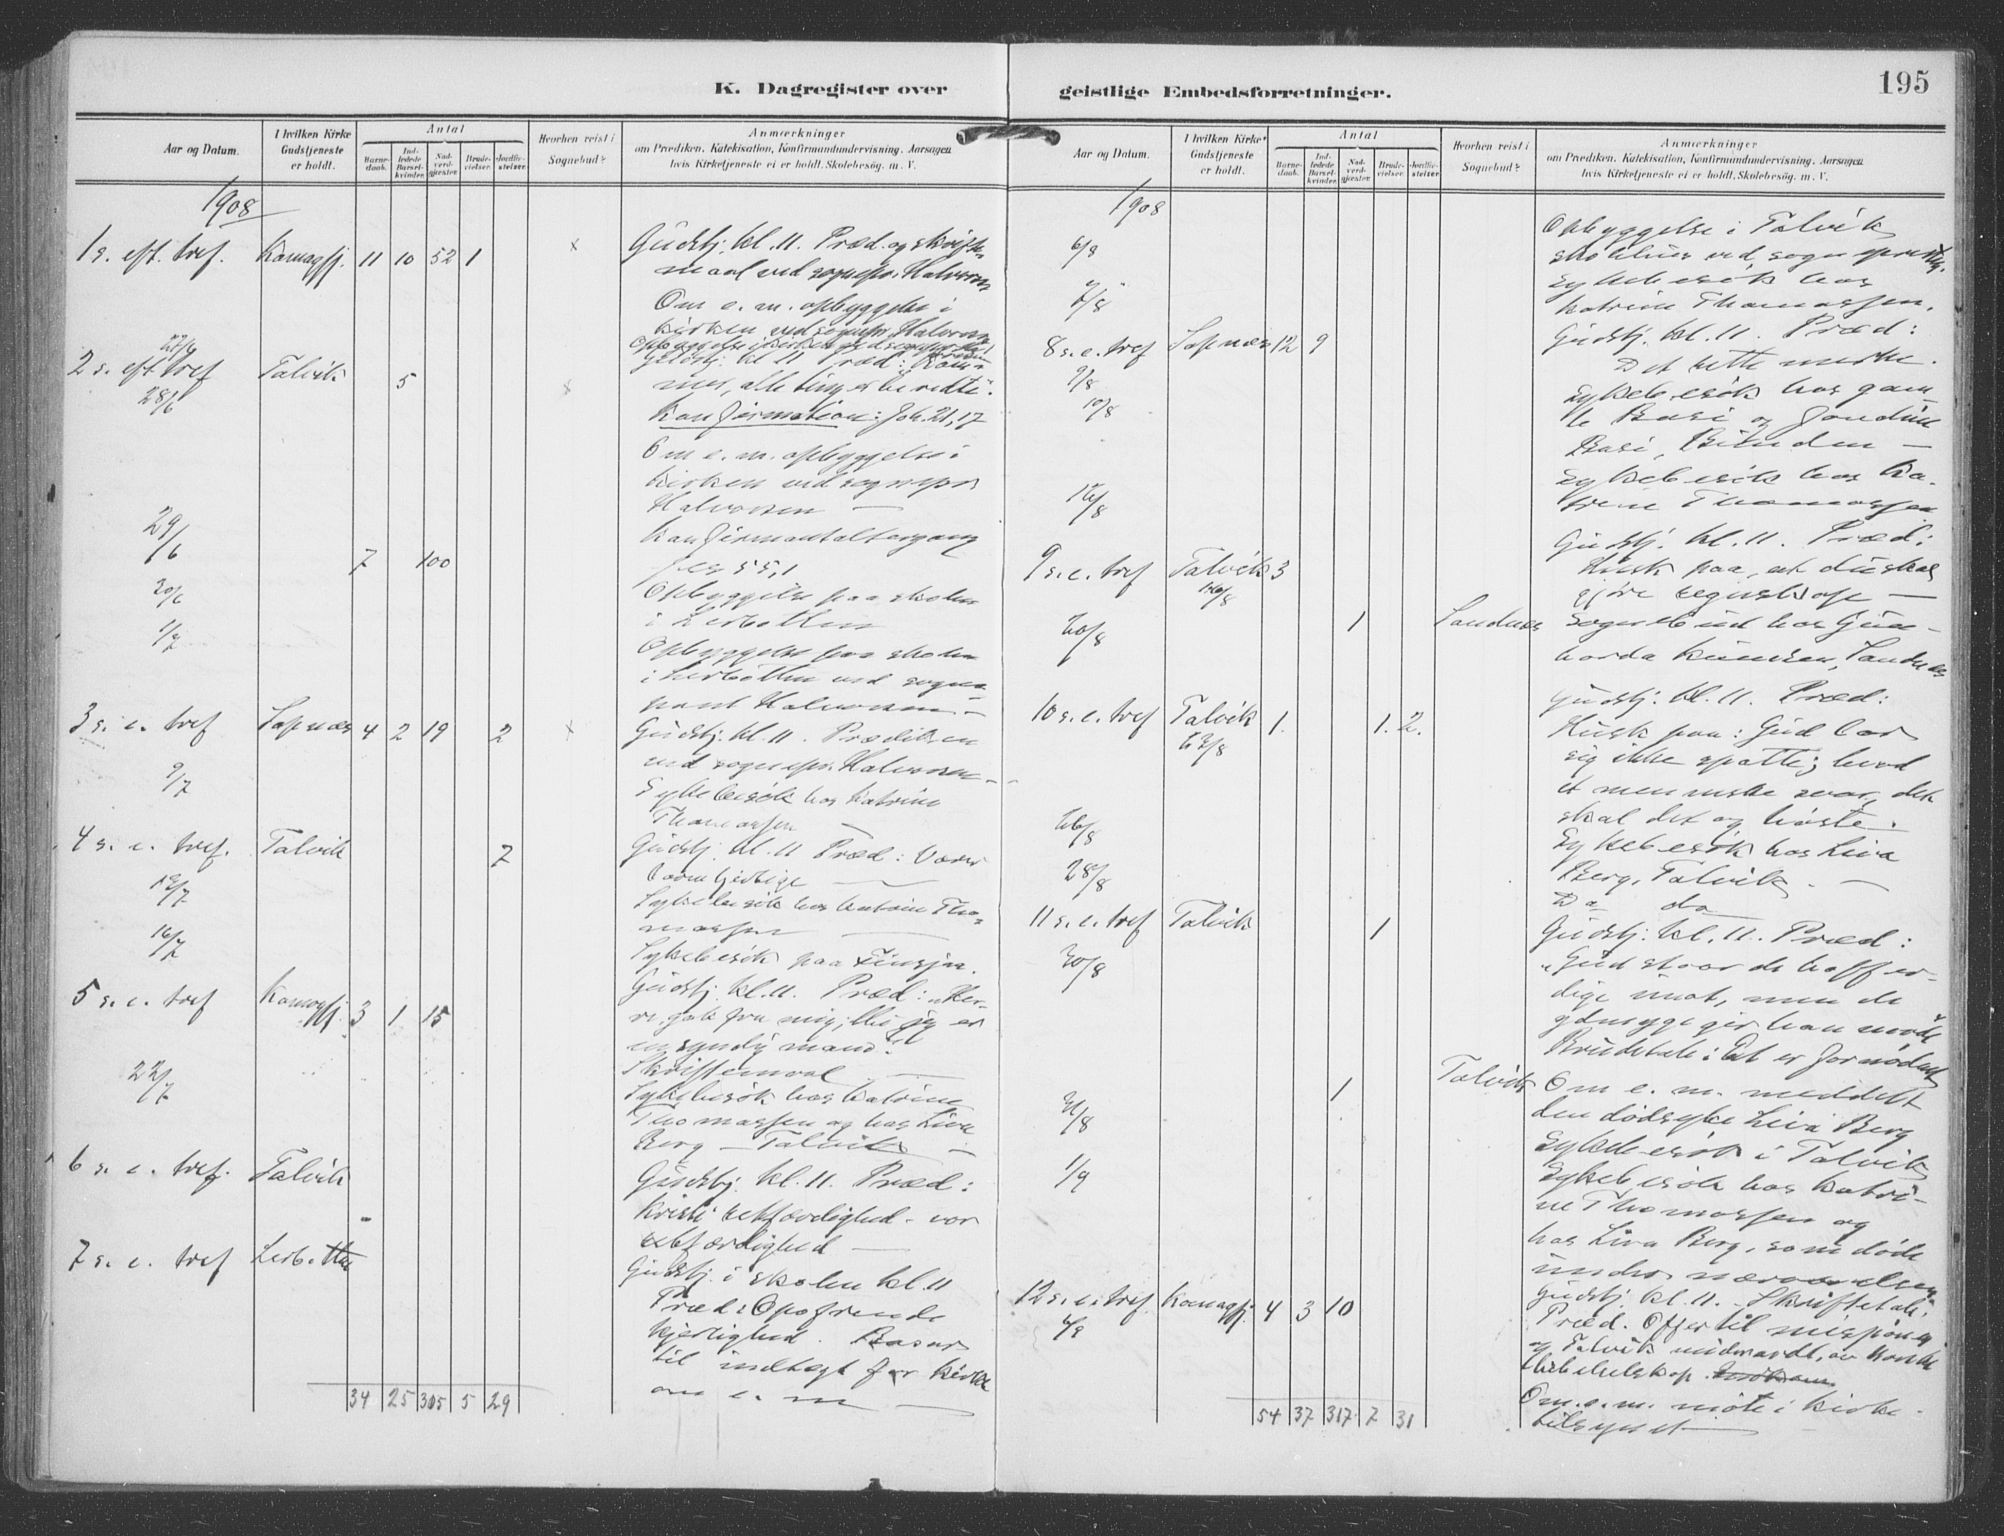 K. Dagregister over
Aar og Datum.
I hvilken Kirke Gudstjeneste er holdt.
Antal
Barne- daab.
Ind- ledede Barsel- kvinder.
Nad- verd- gjæster.
Brude- vielser.
Jordfæ- stelser.
Hvorhen reist i Sognebud?
Anmærkninger
om Prædiken, Katekisation, Konfirmandundervisning, Aarsagen
hvis Kirketjeneste ei er holdt, Skolebesøg. m. V.
1908
1 s. eft. tref. Komagfj. 11 10 52 1 x Gudstj. kl. 11. Præd. og skrifte-
maal ved sognepr. Halvorsen
Om e. m. opbyggelse i
kirken ved sognepr. Halvorsen
27/6
2 s. eft tref Talvik 5 x Gudstj. kl 11 Præd: Kom-
28/6 mer, alle ting er beredte:
Konfirmation: Joh. 21,17
Om e. m. opbyggelse i
kirken ved sognepr
Halvorsen —
29/6 7 100 Konfirmantaltergang
55,1
30/6 Opbyggelse paa skolen
i Lerbotten
1/7 Opbyggelse paa skolen
i Lerbotten ved sogne-
prest Halvorsen —
3 s. e. tref Sopnæs 4 2 19 2 x Gudstj. kl. 11. Prædiken
ved sognepr. Halvorsen —
9/7 Sykebesøk hos Katrine
Thomassen
4 s. e. tref. Talvik 7 Gudstj. kl. 11 Præd: Værer
barmhjertige —
12/7 Sykebesøk hos Katrine Tho-
massen —
16/7 Sykebesøk paa
5 s. e. tref Komagfj. 3 1 15 Gudstj. kl. 11. Præd: "Her-
re gak fra mig; thi jeg er
en syndig mand:
Skriftemaal —
22/7 Sykebesøk hos Katrine
Thomassen og hos Liva
Berg — Talvik —
6 s. e. tref. Talvik Gudstj. kl. 11. Præd:
Kristi retfærdighed - vor
retfærdighed —
7 s. e. tref Lerbotten Gudstj. i skolen kl. 11
Præd: Opofrende
kjerlighed. Basar
til indtægt for kirke
om e. m —
34 25 305 5 29
geistlige Embedsforretninger.
195
Aar og Datum.
I hvilken Kirke Gudstjeneste er holdt.
Antal
Barne- daab.
Ind- ledede Barsel- kvinder.
Nad- verd- gjæster.
Brude- vielser.
Jordfæ- stelser.
Hvorhen reist i Sognebud?
Anmærkninger
om Prædiken, Katekisation, Konfirmandundervisning, Aarsagen
hvis Kirketjeneste ei er holdt, Skolebesøg. m. V.
1908
6/8 Opbyggelse i Talvik
skolehus ved sognepresten.
7/8 Sykebesøk hos
Katrine Thomassen.
8 s. e. tref Sopnæs 12 9 Gudstj. kl. 11. Præd:
9/8 Det rette merke.
10/8 Sykebesøk hos gam-
le Basi og Jondine
Basi, —
12/8 Sykebesøk hos Ka-
trine Thomassen
9 s. e. tref Talvik 3 Gudstj. kl. 11. Præd:
16/8 Husk paa, at du skal
gjøre regnskap —
20/8 1 Sandnes Sognebud hos Gun-
horda Sandnes
10 s. e. tref Talvik 1. 1. 2. Gudstj. kl. 11. Præd:
23/8 Husk paa: Gud lar
sig ikke spotte; hvad
et menneske saar, det
skal det og høste.
26/8 Sykebesøk hos Liva
Berg, Talvik. —
28/8 Do do
11 s. e. tref Talvik 1 Gudstj. kl. 11. Præd:
30/8 "Gud staar de hoffer-
dige imot, men de
ydmyge gir han naade
Brudetale: Et er fornødent
31/8 1 Talvik Om e. m. meddelt
den dødssyke Liva Berg
Sykebesøk i Talvik
1/9 Sykebesøk hos Katri-
ne Thomassen og
hos Liva Berg, som døde
under nærværelsen
12 s. e. tref. Komagfj. 4 3 10 Gudstj. kl. 11. Skriftetale.
6/9 Præd. Offer til
Talvik
Om. e. m. møte i kirke-
tilsynet —
54 37 317 7 31